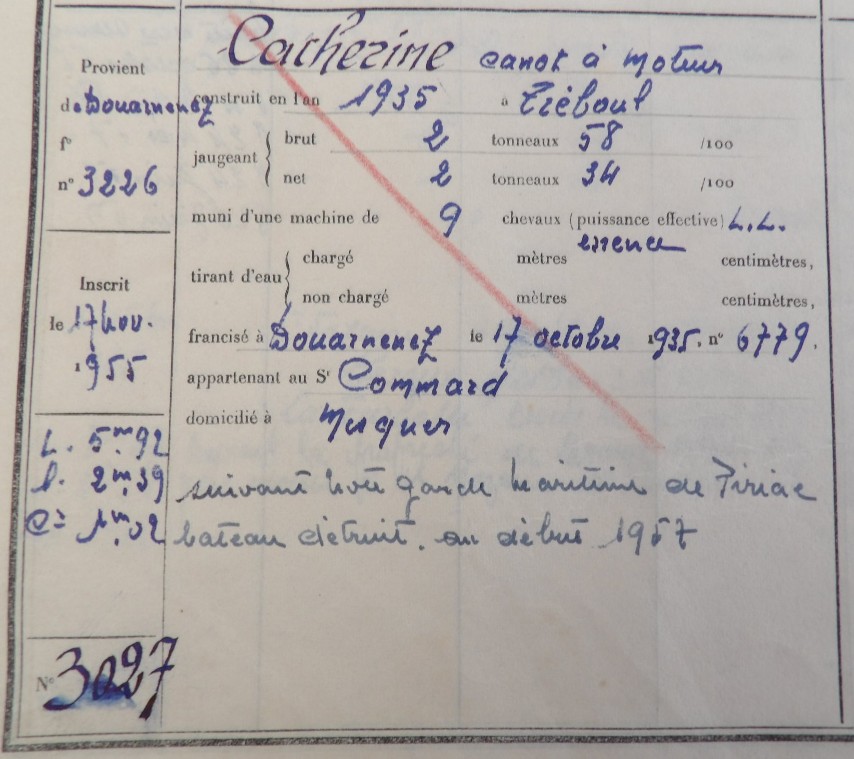 Catherine canot à moteur
Provient
de Douarnenez
f°
n° 3226
construit en l'an 1935 à Tréboul
jaugeant { brut 2 tonneaux 58 /100
net 2 tonneaux 34 /100
muni d'une machine de 9 chevaux (puissance effective) L.L.
essence
Inscrit
le 17 nov.
1955
tirant d'eau { chargé mètres centimètres,
non chargé mètres centimètres,
francisé à Douarnenez le 17 octobre 1935. n° 6779.
appartenant au Sr Commard
domicilié à Mesquer
L. 5m.92
l. 2m.39
C= 1m.02
suivant note garde maritime de Piriac
bateau détruit. au début 1957
N° 3027